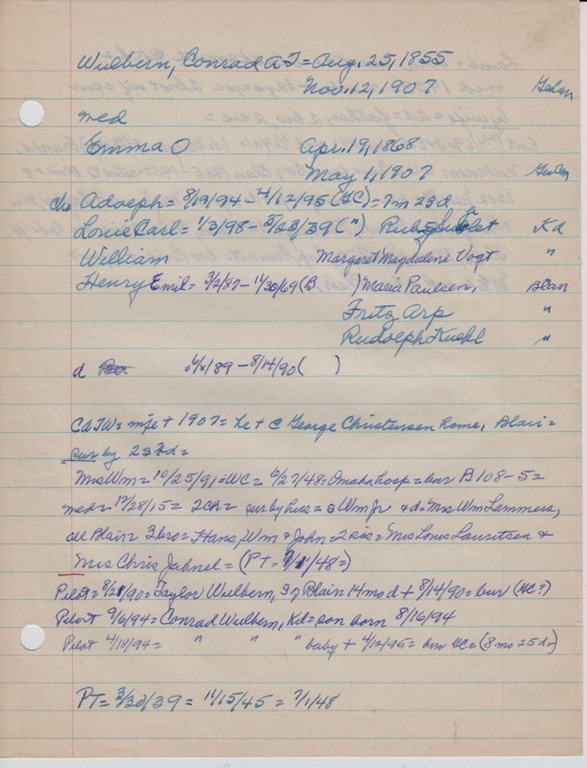 Wulbern, Conrad A J = Aug. 25, 1855
Nov. 12, 1907
med
Emma O Apr. 19, 1868
May 1, 1907
ch Adolph = 8/19/94 - 4/12/95 (GC) = 7m 23d
Louie Carl = 1/3/98 - 3/23/39 ( " ) Ruby Kd
William Margaret Magdalene Vogt "
Henry Emil = 3/2/87 - 11/30/69 (B ) Maria Paulsen, Blair
Fritz Arp "
Rudolph Kuehl "
d 6/x/89 - 8/14/90 ( )
CAJW = mife + 1907 = Le + C George Christensen Home, Blair =
sur by 2s Kd =
Mrs Wm = 10/25/91 = WC = 6/27/48 = Omaha hosp = bur B 108-5 =
med = 12/28/15 = 2ch = sur by hus = s Wm Jr & d = Mrs Wm Lammers,
all Blair = 3 bro = Hans, Wm & John = 2 sis = Mrs Louis Lauritsen &
Mrs Chris Jahnel = (PT = 7/1/48 =)
Pilot = 8/21/90 = Taylor Wulbern, S of Blair 14mo d + 8/14/90 = bur (GC?)
Pilot 9/6/94 = Conrad Wulbern, Kd = son born 8/16/94
Pilot 4/18/94 = " " " baby + 4/12/95 = bur GC = (8 mo 25 d)
PT = 3/30/39 = 11/15/45 = 7/1/48